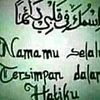 اسمك وقلبي دائما
Namamu selalu
Tersimpan dalam
Hatiku